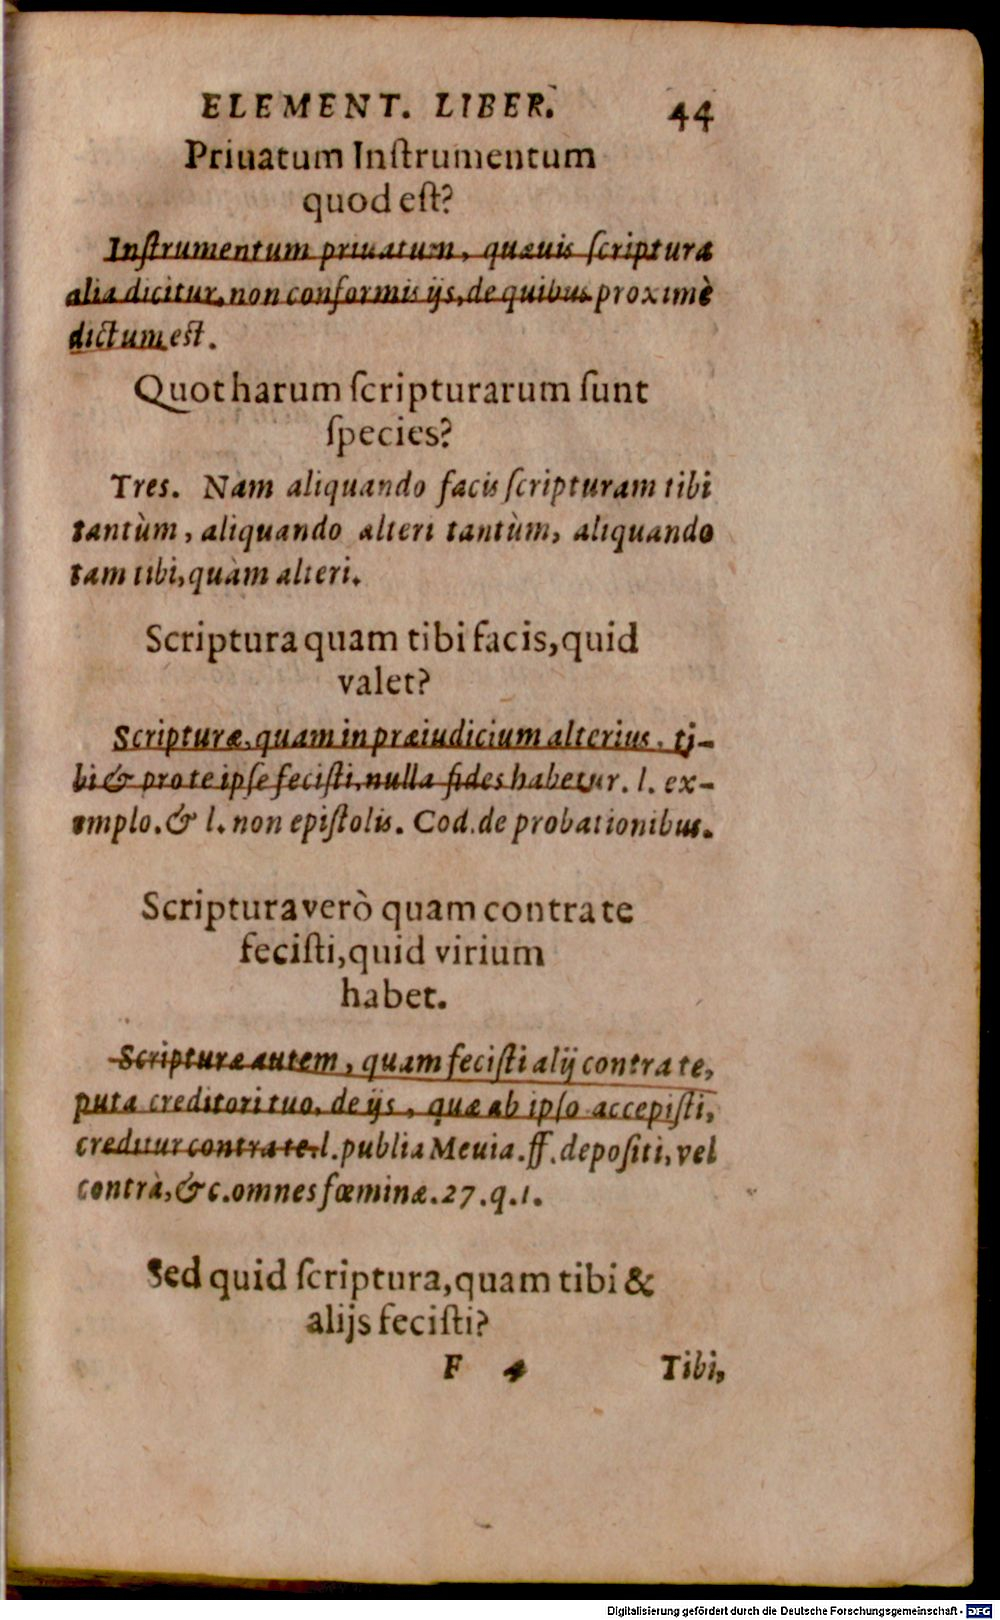 ELEMENT. LIBER. 44
Priuatum Inſtrumentum
quod eſt?
Inſtrumentum priuatum, quæuis ſcriptura
alia dicitur, non conformis ijs, de quibus proximè
dictum est.
Quot harum ſcripturarum ſunt
ſpecies?
Tres. Nam aliquando facis ſcripturam tibi
tantùm, aliquando alteri tantùm, aliquando
tam tibi, quàm alteri.
Scriptura quam tibi facis, quid
valet?
Scripturæ, quam in præiudicium alterius, ti-
bi & pro te ipſe feciſti, nulla fides habetur. l. ex-
emplo. & l. non epiſtolis. Cod. de probationibus.
Scriptura verò quam contra te
feciſti, quid virium
habet.
Scripturæ autem, quam feciſti alij contra te,
puta creditori tuo, de ijs, quæ ab ipſo accepiſti,
creditur contra te. l. publia Meuia. ff. depoſiti, vel
contrà, & c. omnes fœminæ. 27. q. 1.
Sed quid ſcriptura, quam tibi &
alijs feciſti?
F 4 Tibi,
Digitalisierung gefördert durch die Deutsche Forschungsgemeinschaft - DFG